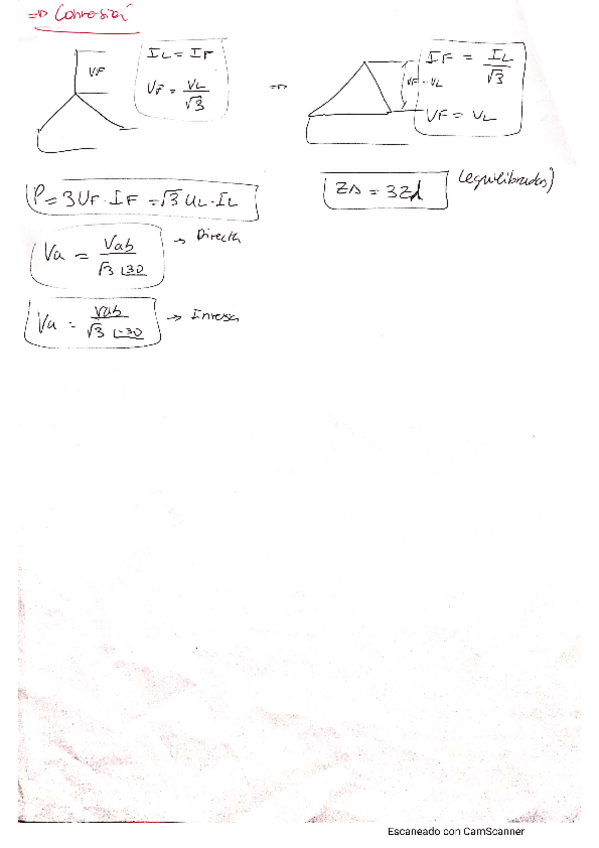 ⇒ Conversión
VF
IL = IF
VF = VL/√3
⇒
VF = VL
IF = IL/√3
VF = VL
P = 3UF·IF = √3 UL·IL
ZΔ = 3Zλ (equilibrados)
Va = Vab/√3 ∠30 → Directa
Va = Vab/√3 ∠-30 → Inversa
Escaneado con CamScanner